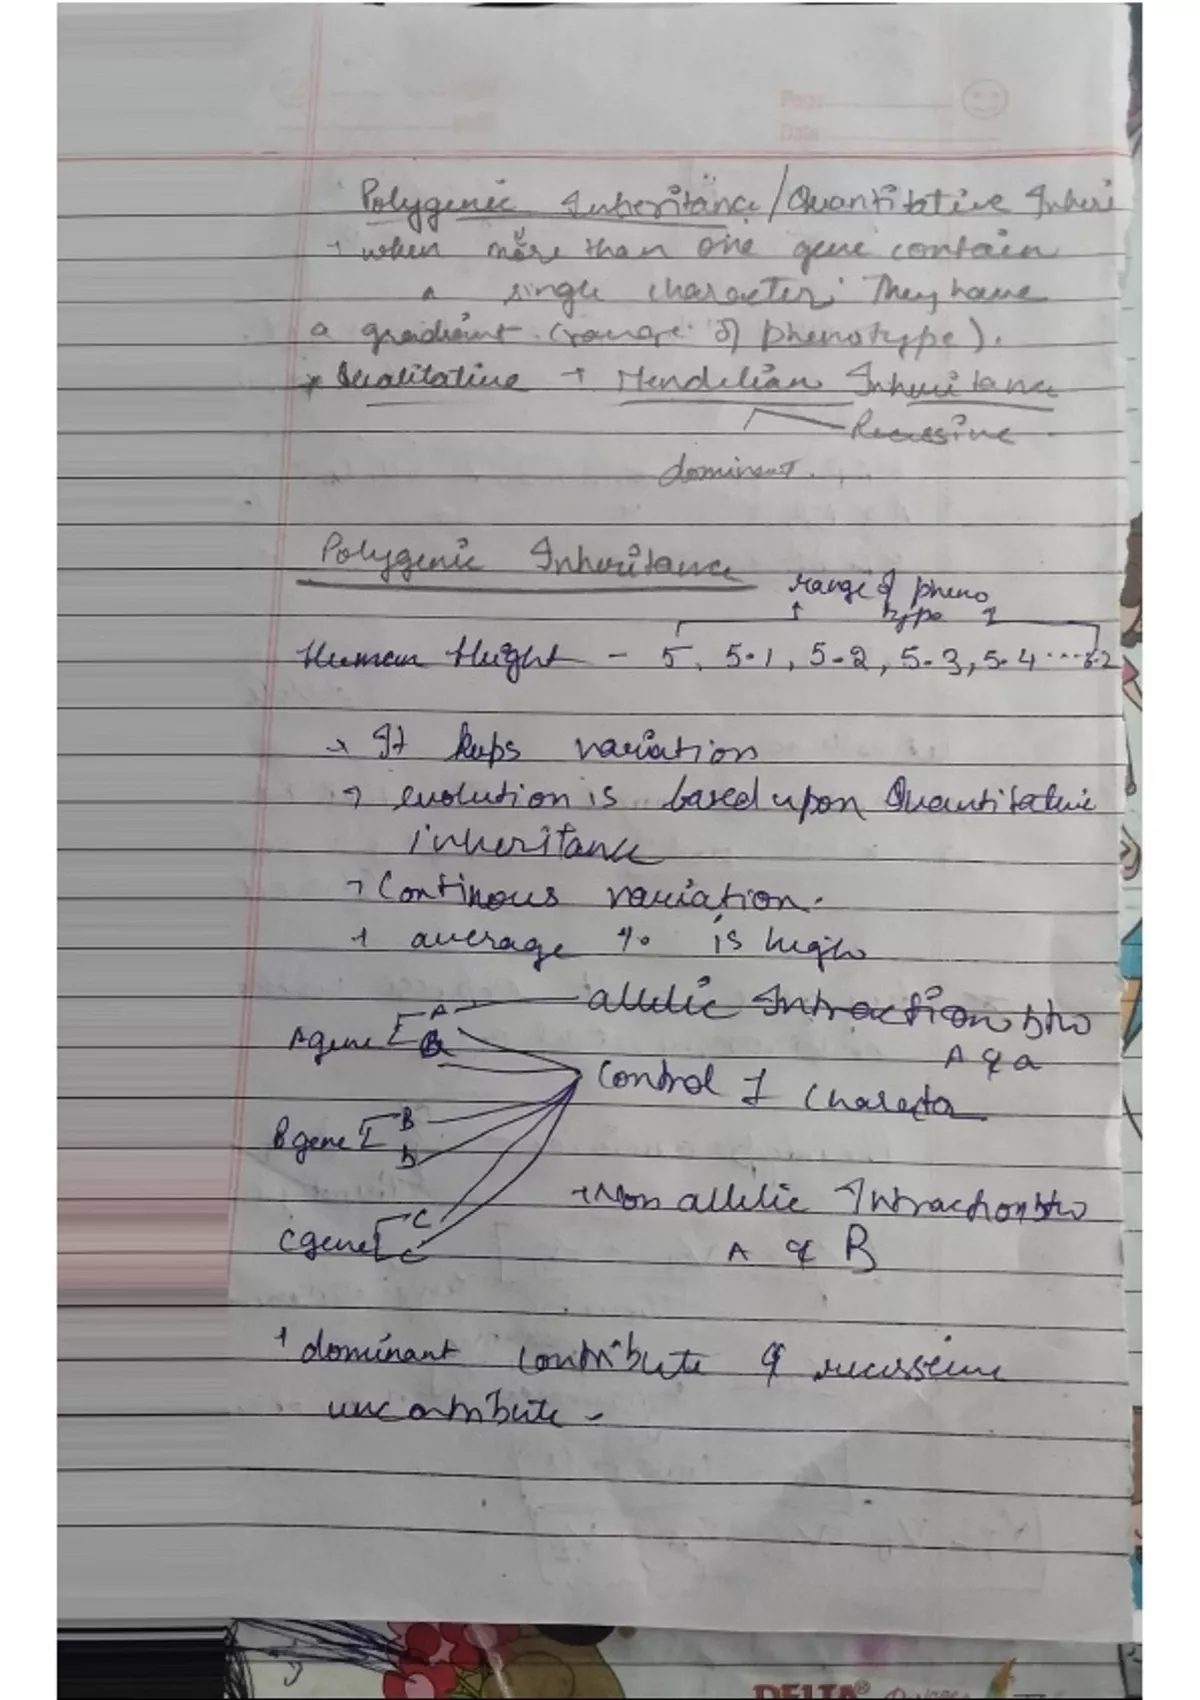 Page
Date
Polygenic Inheritance/Quantitative Inheri
→ when more than one gene contain
a single character. They have
a gradient (range of phenotype).
* Qualitative → Mendelian Inheritance
Recessive
dominent.
Polygenic Inheritance
range of pheno
type
Human Height - 5, 5.1, 5.2, 5.3, 5.4 ....6.2
→ It keeps variation
→ evolution is based upon Quantitative
inheritance
→ Continous variation.
→ average % is high
A gene A a allelic Intraction btw
A & a
Control 1 Character
B gene B b
→ Non allelic Intraction btw
C gene C c A & B
→ dominant contribute & recessive
uncontribute.
DELTA®